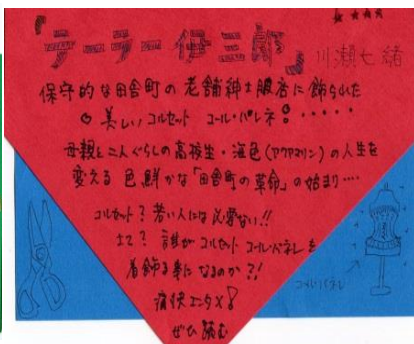 ★★★★
「テーラー伊三郎」川瀬七緒
保守的な田舎町の老舗紳士服店に飾られた
美しいコルセット コール・バレネ!.....
母親と二人ぐらしの高校生・海色(アクアマリン)の人生を
変える 色鮮かな「田舎町の革命」の始まり....
コルセット?若い人には必要ない!!
誰がコルセット コール・バレネを
着飾る事になるのか?!
痛快エンタメ!
ぜひ読む
コールバレネ